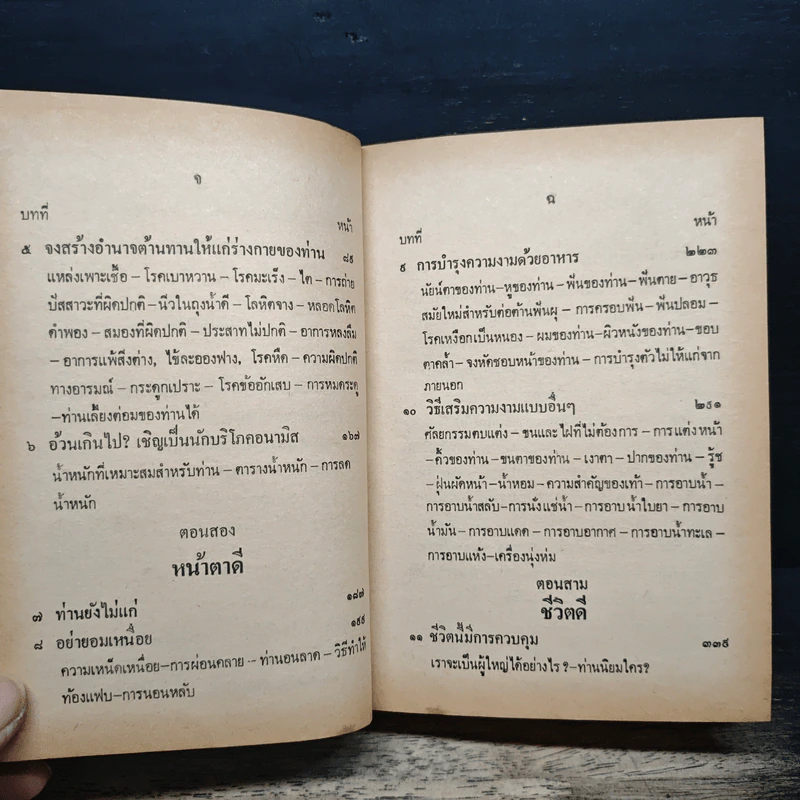 จ
บทที่ หน้า
๕ จงสร้างอำนาจต้านทานให้แก่ร่างกายของท่าน ๘๙
แหล่งเพาะเชื้อ – โรคเบาหวาน – โรคมะเร็ง – ไต – การถ่าย
ปัสสาวะที่ผิดปกติ – นิ่วในถุงน้ำดี – โลหิตจาง – หลอดโลหิต
ดำพอง – สมองที่ผิดปกติ – ประสาทไม่ปกติ – อาการหลงลืม
– อาการแพ้สิ่งต่าง, ไข้ละอองฟาง, โรคหืด – ความผิดปกติ
ทางอารมณ์ – กระดูกเปราะ – โรคข้ออักเสบ – การหมดระดู
– ท่านเลี้ยงต่อมของท่านได้
๖ อ้วนเกินไป? เชิญเป็นนักบริโภคอนามิส ๑๖๗
น้ำหนักที่เหมาะสมสำหรับท่าน – ตารางน้ำหนัก – การลด
น้ำหนัก
ตอนสอง
หน้าตาดี
๗ ท่านยังไม่แก่ ๑๘๗
๘ อย่ายอมเหนื่อย ๑๙๙
ความเหน็ดเหนื่อย – การผ่อนคลาย – ท่านอนลาด – วิธีทำให้
ท้องแฟบ – การนอนหลับ
ฉ
บทที่ หน้า
๙ การบำรุงความงามด้วยอาหาร ๒๒๓
นัยน์ตาของท่าน – หูของท่าน – ฟันของท่าน – ฟันตาย – อาวุธ
สมัยใหม่สำหรับต่อต้านฟันผุ – การครอบฟัน – ฟันปลอม –
โรคเหงือกเป็นหนอง – ผมของท่าน – ผิวหนังของท่าน – ขอบ
ตาคล้ำ – จงหัดชอบหน้าของท่าน – การบำรุงตัวไม่ให้แก่จาก
ภายนอก
๑๐ วิธีเสริมความงามแบบอื่นๆ ๒๙๑
ศัลยกรรมตบแต่ง – ขนและไฝที่ไม่ต้องการ – การแต่งหน้า
– คิ้วของท่าน – ขนตาของท่าน – เงาตา – ปากของท่าน – รู้ช
– ฝุ่นผัดหน้า – น้ำหอม – ความสำคัญของเท้า – การอาบน้ำ –
การอาบน้ำสลับ – การนั่งแช่น้ำ – การอาบน้ำใบยา – การอาบ
น้ำมัน – การอาบแดด – การอาบอากาศ – การอาบน้ำทะเล –
การอาบแห้ง – เครื่องนุ่งห่ม
ตอนสาม
ชีวิตดี
๑๑ ชีวิตนี้มีการควบคุม ๓๓๙
เราจะเป็นผู้ใหญ่ได้อย่างไร ? – ท่านนิยมใคร?